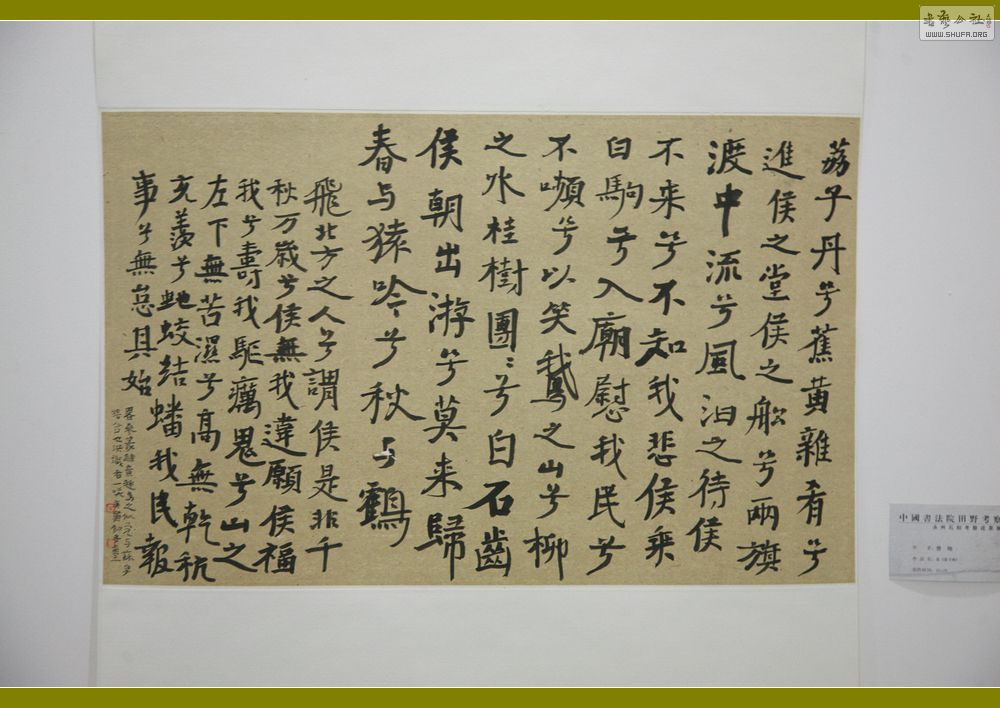 荔子丹兮蕉黄雜肴兮
進侯之堂侯之船兮兩旗
渡中流兮風汩之待侯
不来兮不知我悲侯乘
白駒兮入廟慰我民兮
不嚬兮以笑鵞之山兮柳
之水桂樹團〻兮白石齒
侯朝出游兮莫来歸
春与猿吟兮秋与鶴
飛北方之人兮謂侯是非千
秋万歲兮侯無我違願侯福
我兮壽我驅癘鬼兮山之
左下無苦濕兮高無乾秔
充羨兮虵蛟結蟠我民報
事兮無怠其始
中國書法院田野考察
WWW.SHUFA.ORG